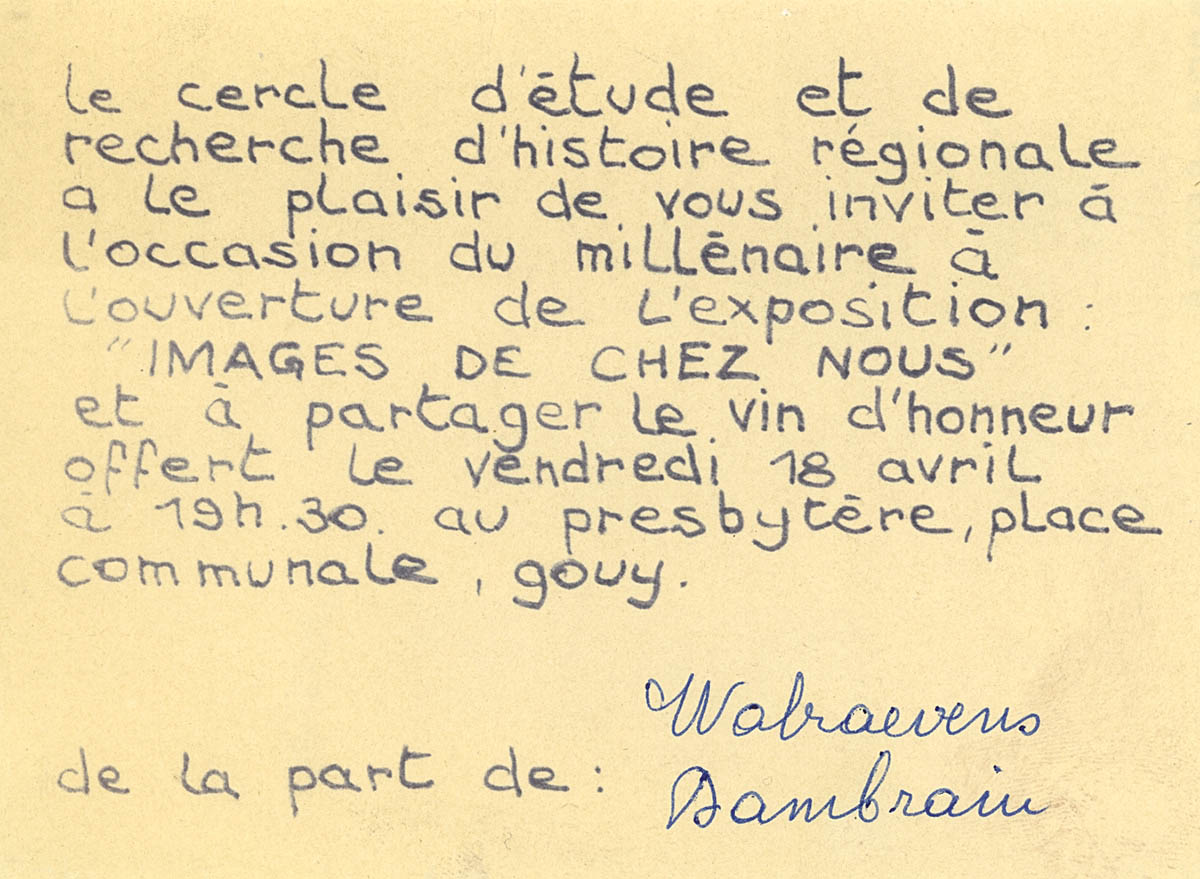 le cercle d'étude et de
recherche d'histoire régionale
a le plaisir de vous inviter à
l'occasion du millénaire à
l'ouverture de l'exposition :
"IMAGES DE CHEZ NOUS"
et à partager le vin d'honneur
offert le vendredi 18 avril
à 19h.30. au presbytère, place
communale, gouy.
Walraevens
de la part de :
Dambrain